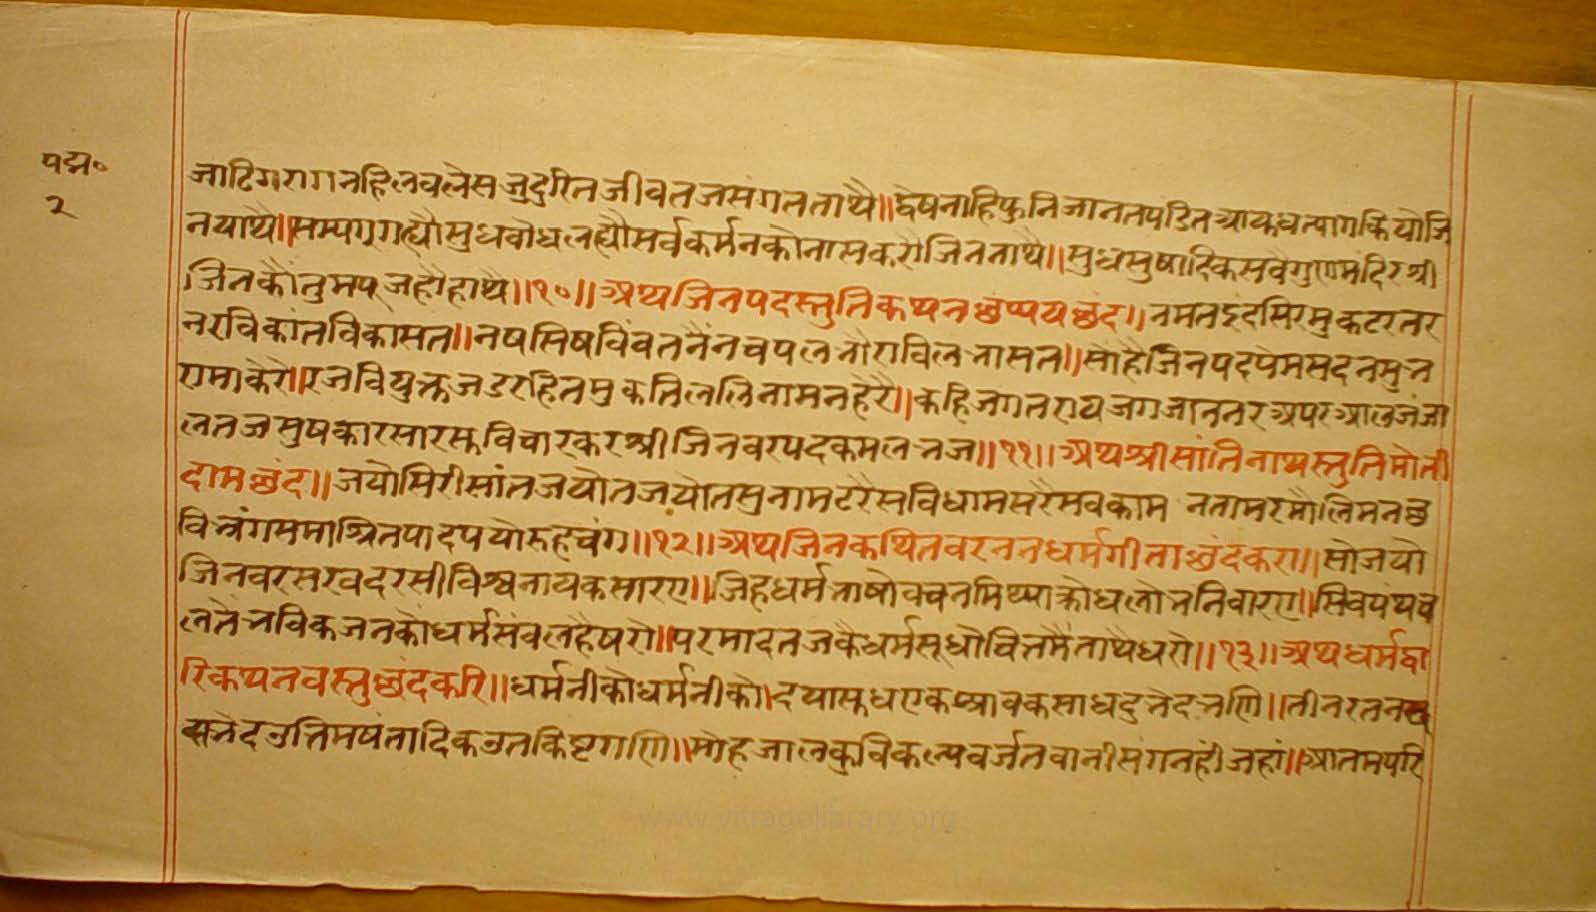 पद्म०
२
जाटिगरागनहिलवलेसजुदुरितजीवतजसंगतताथै॥द्वेषनाहिफुनिजानतपंडितआयुधत्यागकियोजि
नयाथै॥सम्यग्गह्यौसुधबोधलह्यौसर्वकर्मनकोनासकरौजिनताथै॥सुधसुषादिकसवैगुणमंदिरश्री
जिनकौंतुमपूजहौहाथै॥१०॥अथजिनपदस्तुतिकथनछप्पयछंद॥नमतइंदसिरमुकटरतनर
नरविकांतविकासत॥नषससिषविंवत
सोहैजिनपदपदमसदनसु
रमाकेरो॥रजवियुक्तजडरहितमुकतिललिनामनहेरै॥कहिजगतरायजगजानतरअपरआलजंजा
लतजसुषकारसारसुविचारकरश्रीजिनवरपदकमलभज॥११॥अथश्रीसांतिनाथस्तुतिमोती
दामछंद॥जयोसिरीसांतजयोतजयोतसुनामटरैसविधामसरैसवकाम नतामरमौलि
समाश्रितपादपयोरुहचंग॥१२॥अथजिनकथितवरननधर्मगीताछंदकरा॥सोजयो
जिनवरसरवदरसीविश्वनायकसारए॥जिहधर्मभाषोवचनमिथ्याक्रोधलोभनिवारए॥सिवपंथच
लतैंभविकजनकौंधर्मसंवलहैषरो॥परमादतजकैधर्मसूधोचित्तमैंताथैधरो॥१३॥अथधर्मद्वा
रिकथनवस्तुछंदकरि॥धर्मनीकोधर्मनीको।दयासुधएकश्रावकसाधदुभेदभणि॥तीनरतन
भेदउत्तिमषंतादिकउतकिष्टगणि॥मोहजालकुविकल्पवर्जतवानीसंगनहींजहां॥आतमपरि
www.vitragollbrary.org